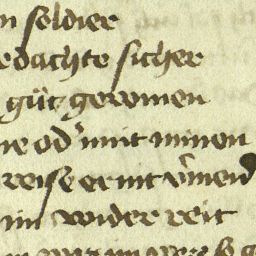 n soldier
edachte sicher
güt gewinnen
ne od' mit minen
reise er nit v'mend
im wider reit